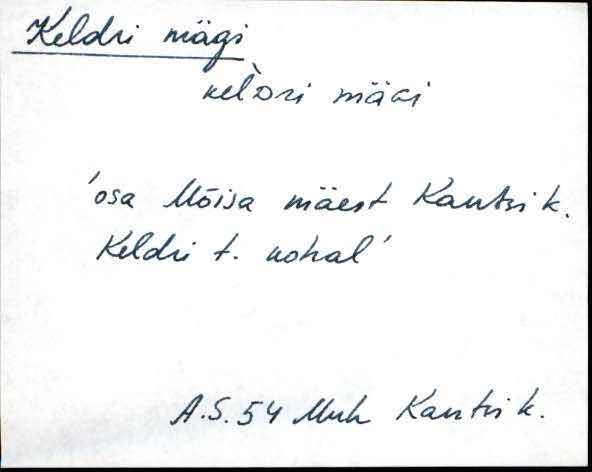 Keldri mägi
kel̀dri mäGi
'osa Mõisa mäest Kantsi k.
Keldri t. kohal'
A.S. 54 Muh Kantsi k.